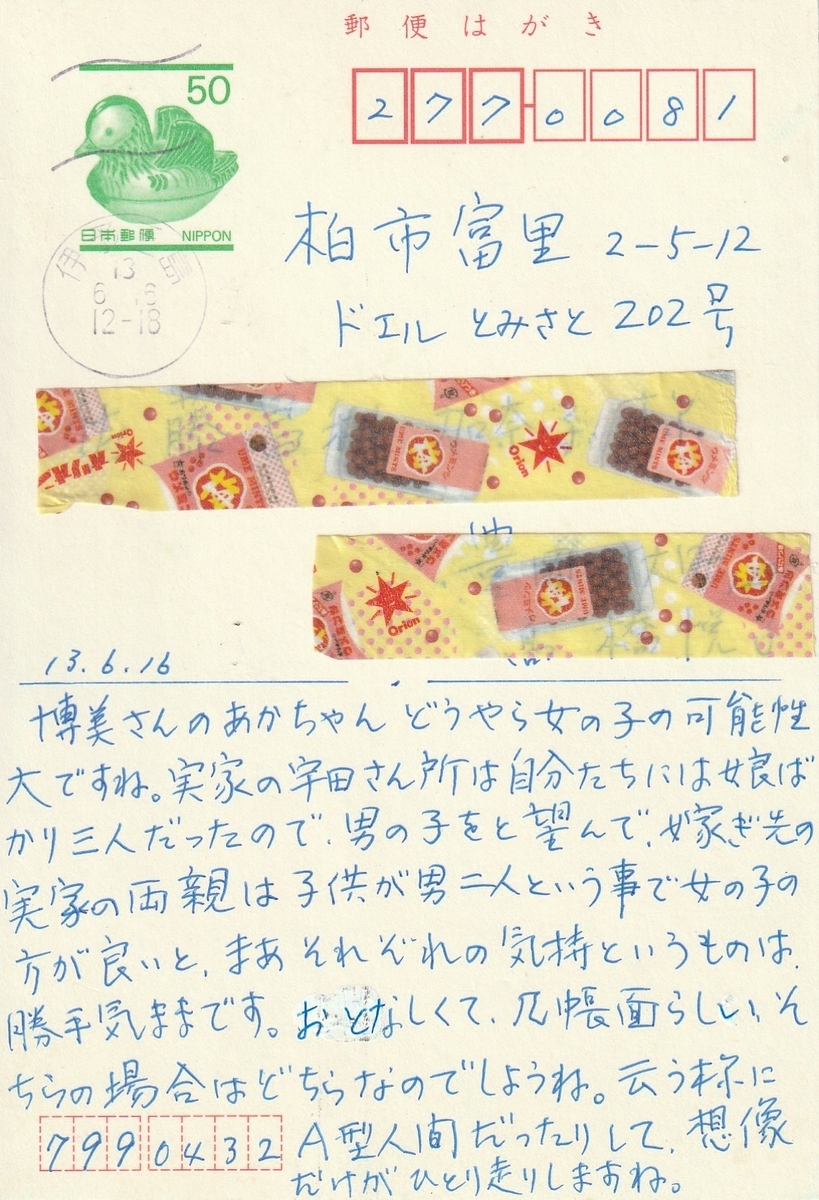 郵便はがき
50
日本郵便 NIPPON
277-0081
13
6 16
12-18
柏市富里 2-5-12
ドエル とみさと 202号
Orion
UME MINTS
Orion
Orion
UME MINTS
13.6.16
博美さんのあかちゃん どうやら女の子の可能性
大ですね。実家の宇田さん所は自分たちには娘ば
かり三人だったので、男の子をと望んで、嫁ぎ先の
実家の両親は子供が男二人という事で女の子の
方が良いと、まあそれぞれの気持というものは、
勝手気ままです。おとなしくて、几帳面らしい、そ
ちらの場合はどちらなのでしようね。云う様に
A型人間だったりして、想像
だけがひとり走りしますね。
7990432